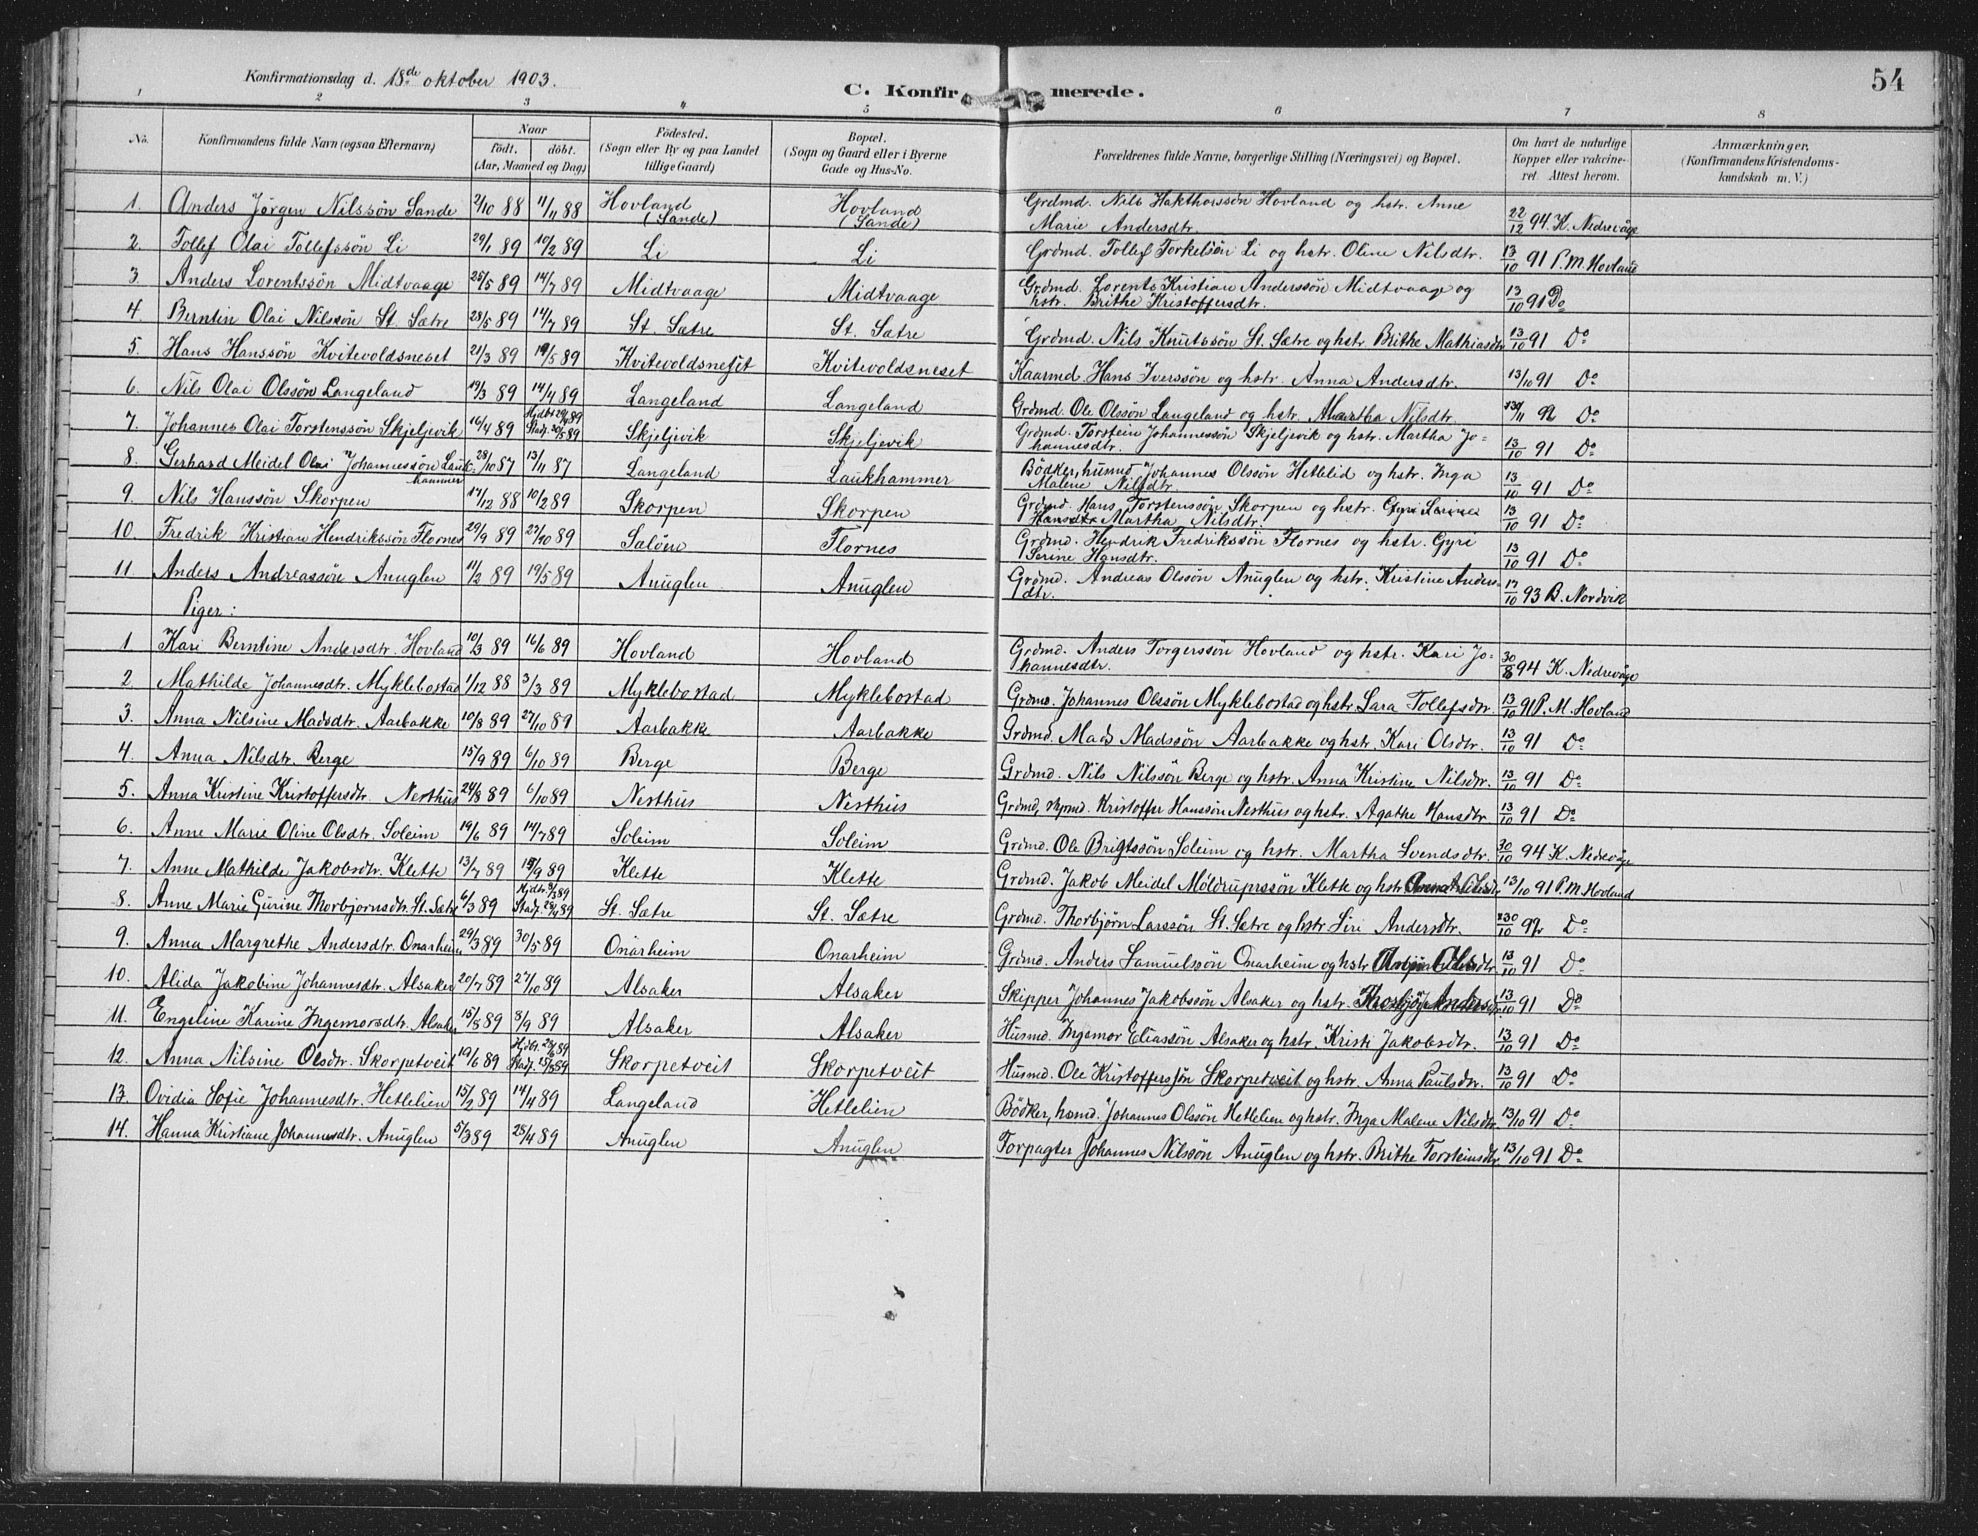 Konfirmationsdag d. 18de oktober 1903.
C. Konfirmerede.
54
1 2 3 4 5 6 7 8
No. Konfirmandens fulde Navn (ogsaa Efternavn) Naar født. døbt. (Aar, Maaned og Dag) Födested. (Sogn eller By og paa Landet tillige Gaard) Bopæl. (Sogn og Gaard eller i Byerne Gade og Hus-No. Forældrenes fulde Navne, borgerlige Stilling (Næringsvei) og Bopæl. Om havt de naturlige Kopper eller vakcineret. Attest herom. Anmærkninger. (Konfirmandens Kristendomskundskab m. V.)
1. Anders Jørgen Nilssøn Sande 2/10 88 11/11 88 Hovland (Sande) Hovland (Sande) Grdmd. Nils Hakthorssøn Hovland og hstr. Anne Marie Andersdtr. 22/12 94 K. Nedrevåge
2. Tollef Olai Tollefssøn Li 29/1 89 10/2 89 Li Li Grdmd. Tollef Torkelsøn Li og hstr. Oline Nilsdtr. 13/10 91 P. M. Hovland
3. Anders Lorentssøn Midtvaage 25/5 89 14/7 89 Midtvaage Midtvaage Grdmd. Lorents Kristian Anderssøn Midtvaage og hstr. Brithe Kristoffersdtr. 13/10 91 Do
4. Berntin Olai Nilssøn St. Sætre 28/5 89 14/7 89 St. Sætre St. Sætre Grdmd. Nils Knutssøn St. Sætre og hstr. Brithe Mathiasdtr 13/10 91 Do
5. Hans Hanssøn Kvitevoldsneset 21/3 89 19/5 89 Kvitevoldsneset Kvitevoldsneset Kaarmd Hans Iverssøn og hstr. Anna Andersdtr. 13/10 91 Do
6. Nils Olai Olssøn Langeland 19/3 89 14/4 89 Langeland Langeland Grdmd. Ole Olssøn Langeland og hstr. Martha Nilsdtr. 92 Do
7. Johannes Olai Torstenssøn Skjeljevik 16/4 89 Hjdbt 89 Stadf. 89 Skjeljevik Skjeljevik Grdmd. Torstein Johannessøn Skjeljevik og hstr. Martha Johannesdtr. 13/10 91 Do
8. Gerhard Meidel Olai Johannessøn Laukhammer 28/10 87 13/11 87 Langeland Laukhammer Bödker, husmd Johannes Olssøn Hetlelid og hstr. Inga Malene Nilsdtr 13/10 91 Do
9. Nils Hanssøn Skorpen 17/12 88 10/2 89 Skorpen Skorpen Grdmd. Hans Torstenssøn Skorpen og hstr. Gyri Serine Hansdtr Martha Nilsdtr. 13/10 91 Do
10. Fredrik Kristian Hendrikssøn Flornes 29/9 89 27/10 89 Saløen Flornes Grdmd. Hendrik Fredrikssøn Flornes og hstr. Gyri Serine Hansdtr. 13/10 91 Do
11 Anders Andreassøn Anuglen 11/2 89 19/5 89 Anuglen Anuglen Grdmd. Andreas Olssøn Anuglen og hstr. Kristine Andersdtr. 17/10 93 B. Nordvik
Piger:
1 Kari Berntine Andersdtr. Hovland 10/3 89 16/6 89 Hovland Hovland Grdmd. Anders Torgerssøn Hovland og hstr. Kari Johannesdtr. 94 K. Nedrevåge
2. Mathilde Johannesdtr. Myklebostad 1/12 88 3/3 89 Myklebostad Myklebostad Grdmd. Johannes Olssøn Myklebostad og hstr. Lara Tollefsdtr. 13/10 91 P. M. Hovland
3. Anna Nilsine Madsdtr. Aarbakke 10/8 89 27/10 89 Aarbakke Aarbakke Grdmd. Mads Madssøn Aarbakke og hstr. Kari Olsdtr. 13/10 91 Do
4. Anna Nilsdtr. Berge 15/9 89 6/10 89 Berge Berge Grdmd. Nils Nilssøn Berge og hstr. Anna Kristine Nilsdtr. 13/10 91 Do
5. Anna Kristine Kristoffersdtr. Nesthus 24/8 89 6/10 89 Nesthus Nesthus Grdmd, Kristoffer Hanssøn Nesthus og hstr. Agathe Hansdtr. 13/10 91 Do
6. Anne Marie Oline Olsdtr. Soleim 19/6 89 14/7 89 Soleim Soleim Grdmd. Ole Brigtssøn Soleim og hstr. Martha Svendsdtr. 30/10 94 K. Nedrevåge
7. Anne Mathilde Jakobsdtr. Klette 13/7 89 15/9 89 Klette Klette Grdmd. Jakob Meidel Möldrupssøn Klette og hstr. 13/10 91 P. M. Hovland
8. Anne Marie Gurine Thorbjørnsdtr. St. Sætre 6/3 89 Hjdbt. 89 Stadf. 89 St. Sætre St. Sætre Grdmd. Thorbjørn Larssøn St. Sætre og hstr Siri Andersdtr. Do
9. Anna Margrethe Andersdtr. Onarheim 29/3 89 30/5 89 Onarheim Onarheim Grdmd. Anders Samuelssøn Onarheim og hstr. 13/10 91 Do
10. Alida Jakobine Johannesdtr. Alsaker 20/7 89 27/10 89 Alsaker Alsaker Skipper Johannes Jakobssøn Alsaker og hstr. 13/10 91 Do
11. Engeline Karine Ingemorsdtr. Alsaker 15/8 89 8/9 89 Alsaker Alsaker Husmd. Ingemor Eliassøn Alsaker og hstr. Kristi Jakobsdtr. 13/10 91 Do
12. Anna Nilsine Olsdtr. Skorpetveit 19/6 89 Hjdbt. 89 Stadf. 89 Skorpetveit Skorpetveit Husmd. Ole Kristofferssøn Skorpetveit og hstr. Anna Paulsdtr. 13/10 91 Do
13. Ovidia Sofie Johannesdtr. Hetlelien 15/2 89 14/4 89 Langeland Hetlelien Bödker, hsmd. Johannes Olssøn Hetlelien og hstr. Inga Malene Nilsdtr 13/10 91 Do
14. Hanna Kristiane Johannesdtr. Anuglen 5/3 89 28/4 89 Anuglen Anuglen Forpagter Johannes Nilssøn Anuglen og hstr. Brithe Torsteinsdtr. 13/10 91 Do